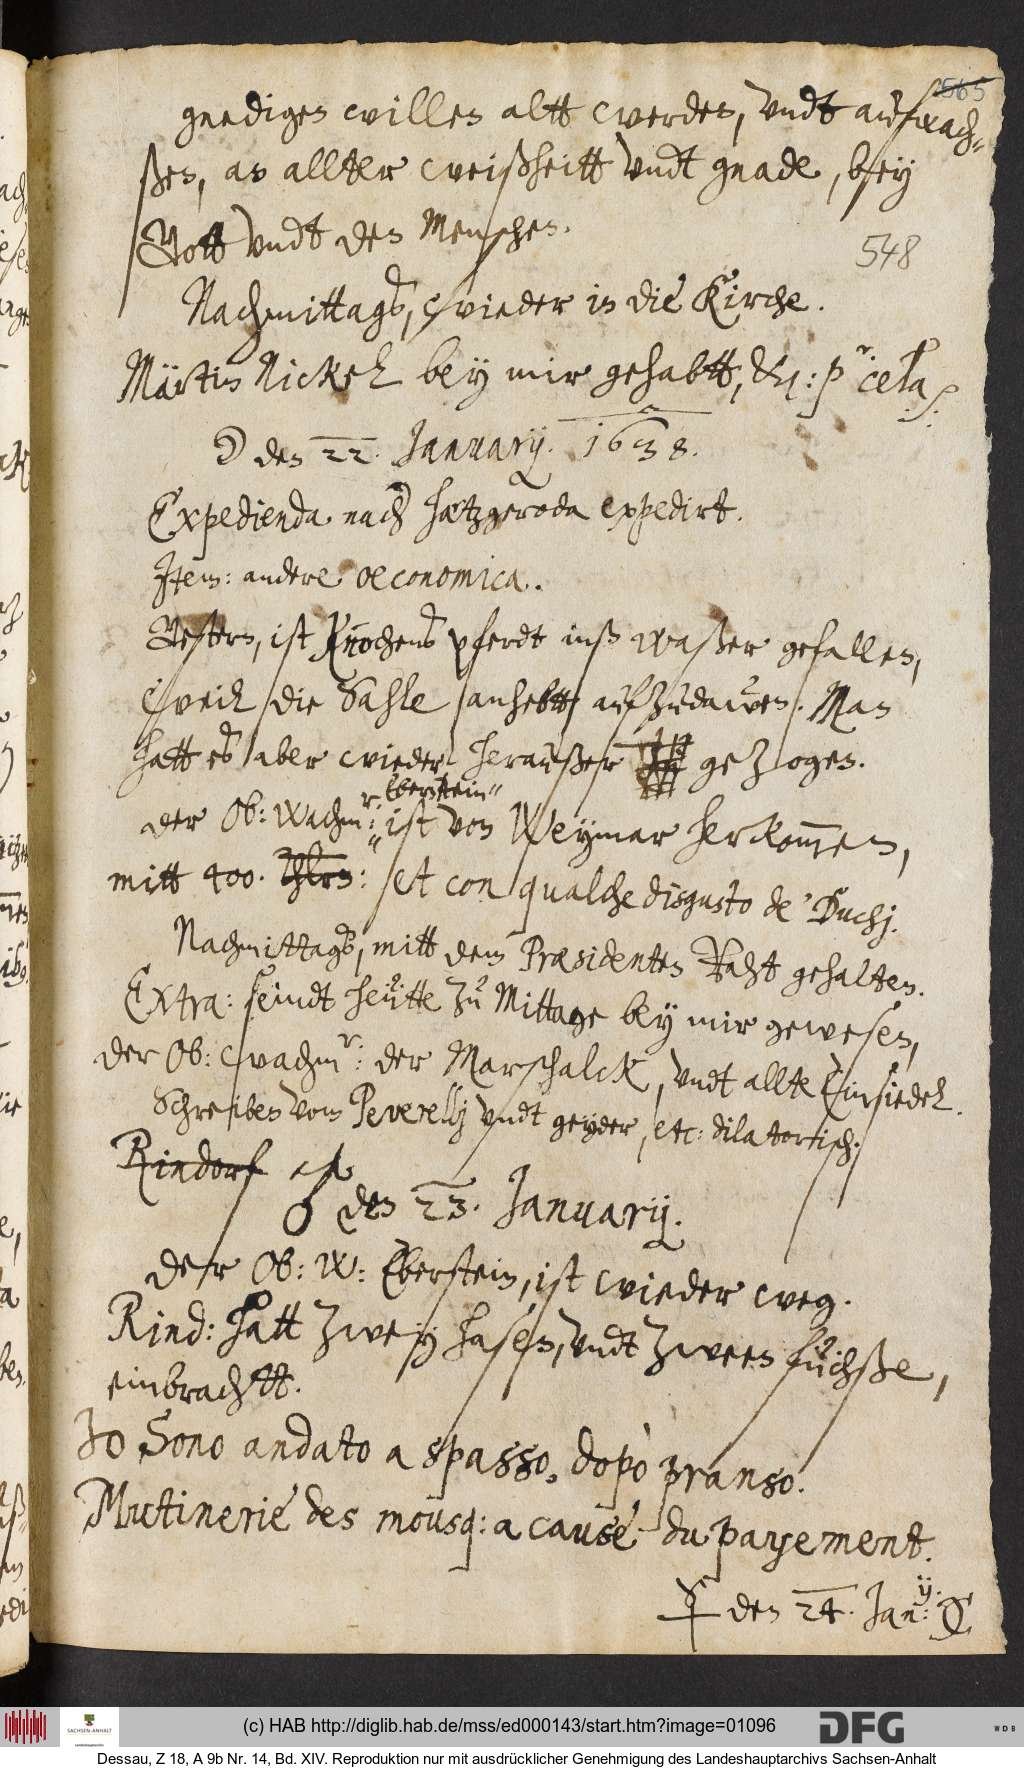 565
gnediges willen altt werden, vndt aufwach-
ßen, an allter weißheitt vndt gnade, bey
Gott vndt den Menschen.
548
Nachmittags, wieder in die Kirche.
Märtin Nickel bey mir gehabtt,
☽ den 22. January. 1638.
Expedienda nach hatzgeroda expedirt.
Item: andere oeconomica.
Gestern, ist Knochens pferdt inß waßer gefallen,
weil die Sahle anhebtt aufzudawen. Man
hatt es aber wieder heraußer gezogen.
der Ob: Wachmr: Eberstein ist von Weymar herkommen,
mitt 400. Thlrn: et con qualche disgusto de' Duchj.
Nachmittags, mitt dem Præsidenten Raht gehalten.
Extra: seindt heütte zu Mittage bey mir gewesen,
der Ob: wachmr: der Marschalck, vndt allte Einsiedel.
Schreiben vom Peverellj vndt geyder, etc: dilatorisch.
Rindorf
♂ den 23. January.
der Ob: W: Eberstein, ist wieder weg.
Rind: hatt zwey hasen, vndt zween füchße,
einbrachtt.
Io Sono andato a spasso, dopò pranso.
Mutinerie des mousq: a cause du payement.
☿ den 24. Jan:y.
(c) HAB http://diglib.hab.de/mss/ed000143/start.htm?image=01096
SACHSEN-ANHALT
DFG
WDB
Dessau, Z 18, A 9b Nr. 14, Bd. XIV. Reproduktion nur mit ausdrücklicher Genehmigung des Landeshauptarchivs Sachsen-Anhalt